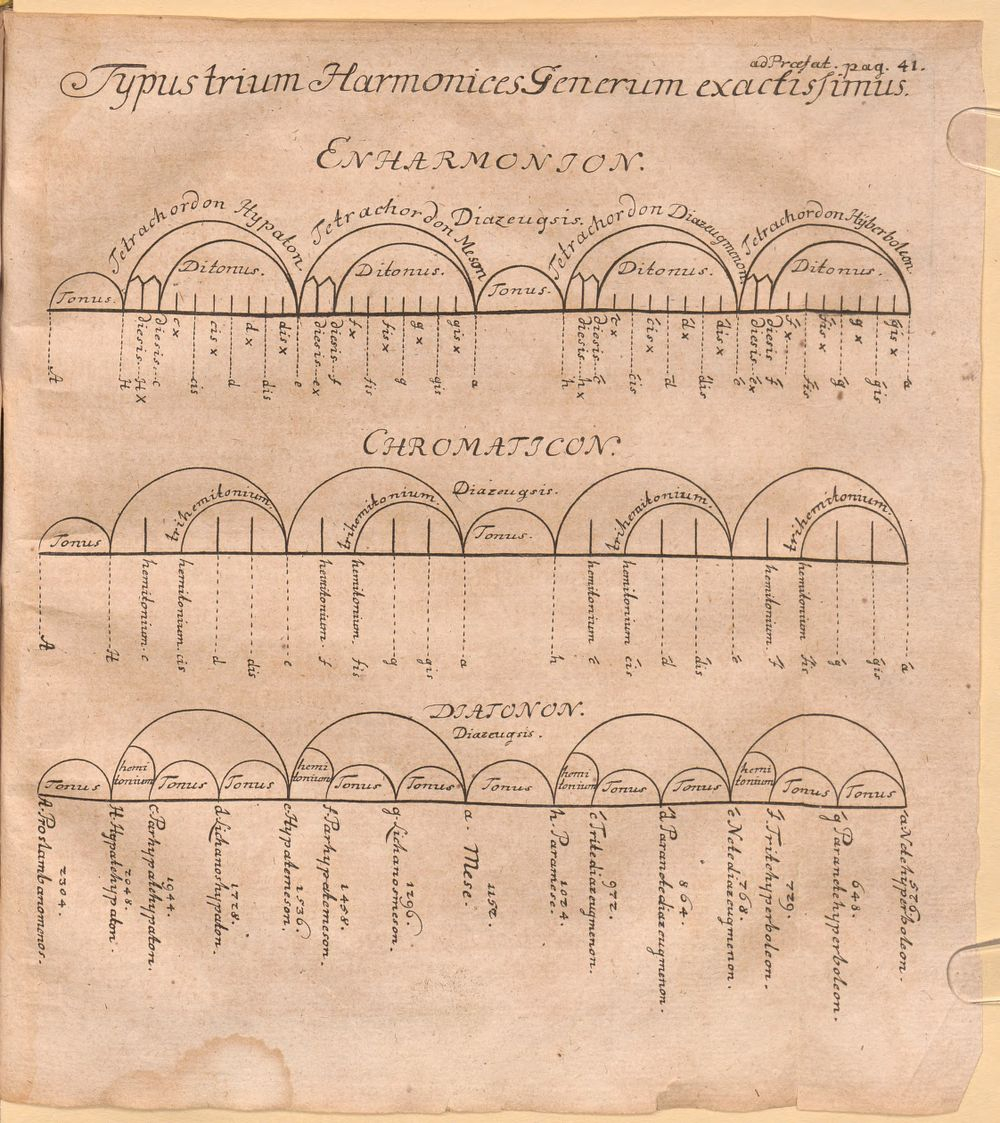 ad Præfat. pag. 41.
Typus trium Harmonices Generum exactissimus.
ENHARMONION.
Tetrachordon Hypaton
Tetrachordon Meson
Diazeugsis.
Tetrachordon Diazeugmenon
Tetrachordon Hÿberboleon
Tonus. Ditonus. Ditonus. Tonus. Ditonus. Ditonus.
A
H
diesis H x
diesis c
c x
cis
cis x
d
d x
dis
dis x
e
diesis ex
diesis f
f x
fis
fis x
g
g x
gis
gis x
a
h
diesis h x
diesis c̄
c̄ x
c̄is
c̄is x
d̄
d̄ x
d̄is
d̄is x
ē
diesis ēx
diesis f̄
f̄ x
f̄is
f̄is x
ḡ
ḡ x
ḡis
ḡis x
ā
CHROMATICON.
Diazeugsis.
Tonus trihemitonium. trihemitonium. Tonus. trihemitonium. trihemitonium.
A
H
hemitonium c
hemitonium cis
d
dis
e
hemitonium f
hemitonium fis
g
gis
a
h
hemitonium c̄
hemitonium c̄is
d̄
d̄is
ē
hemitonium f̄
hemitonium f̄is
ḡ
ḡis
ā
DIATONON.
Diazeugsis.
Tonus hemitonium Tonus Tonus hemitonium Tonus Tonus Tonus hemitonium Tonus Tonus hemitonium Tonus Tonus
A. Proslambanomonos.
2304.
H Hypatehypaton.
2048.
c Parhypatehypaton.
1944.
d Lichanoshypaton.
1728.
e Hypatemeson.
1536
f Parhypatemeson.
1458.
g Lichanosmeson.
1296.
a. Mese.
1152.
h. Paramese.
1024.
c̄ Tritediazeugmenon.
972.
d̄ Paranetediazeugmenon.
864.
ē Netediazeugmenon.
768.
f̄ Tritehyperboleon.
729.
ḡ Paranetehyperboleon.
648.
ā Netehyperboleon.
576.